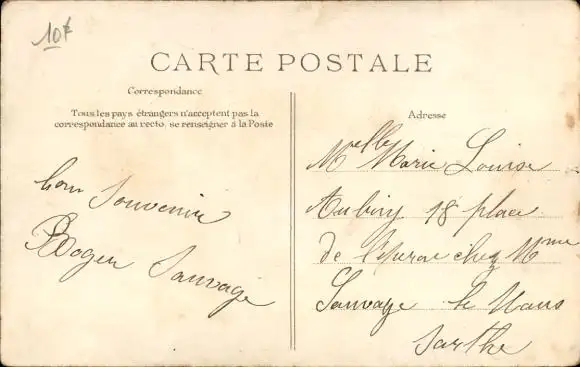 10€
CARTE POSTALE
Correspondance
Tous les pays étrangers n'acceptent pas la
correspondance au recto, se renseigner à la Poste
Adresse
bon Souvenir
Roger Sauvage
Melle Marie Louise
Aubiny 18 place
de l'éperon chez Mme
Sauvage Le Mans
Sarthe